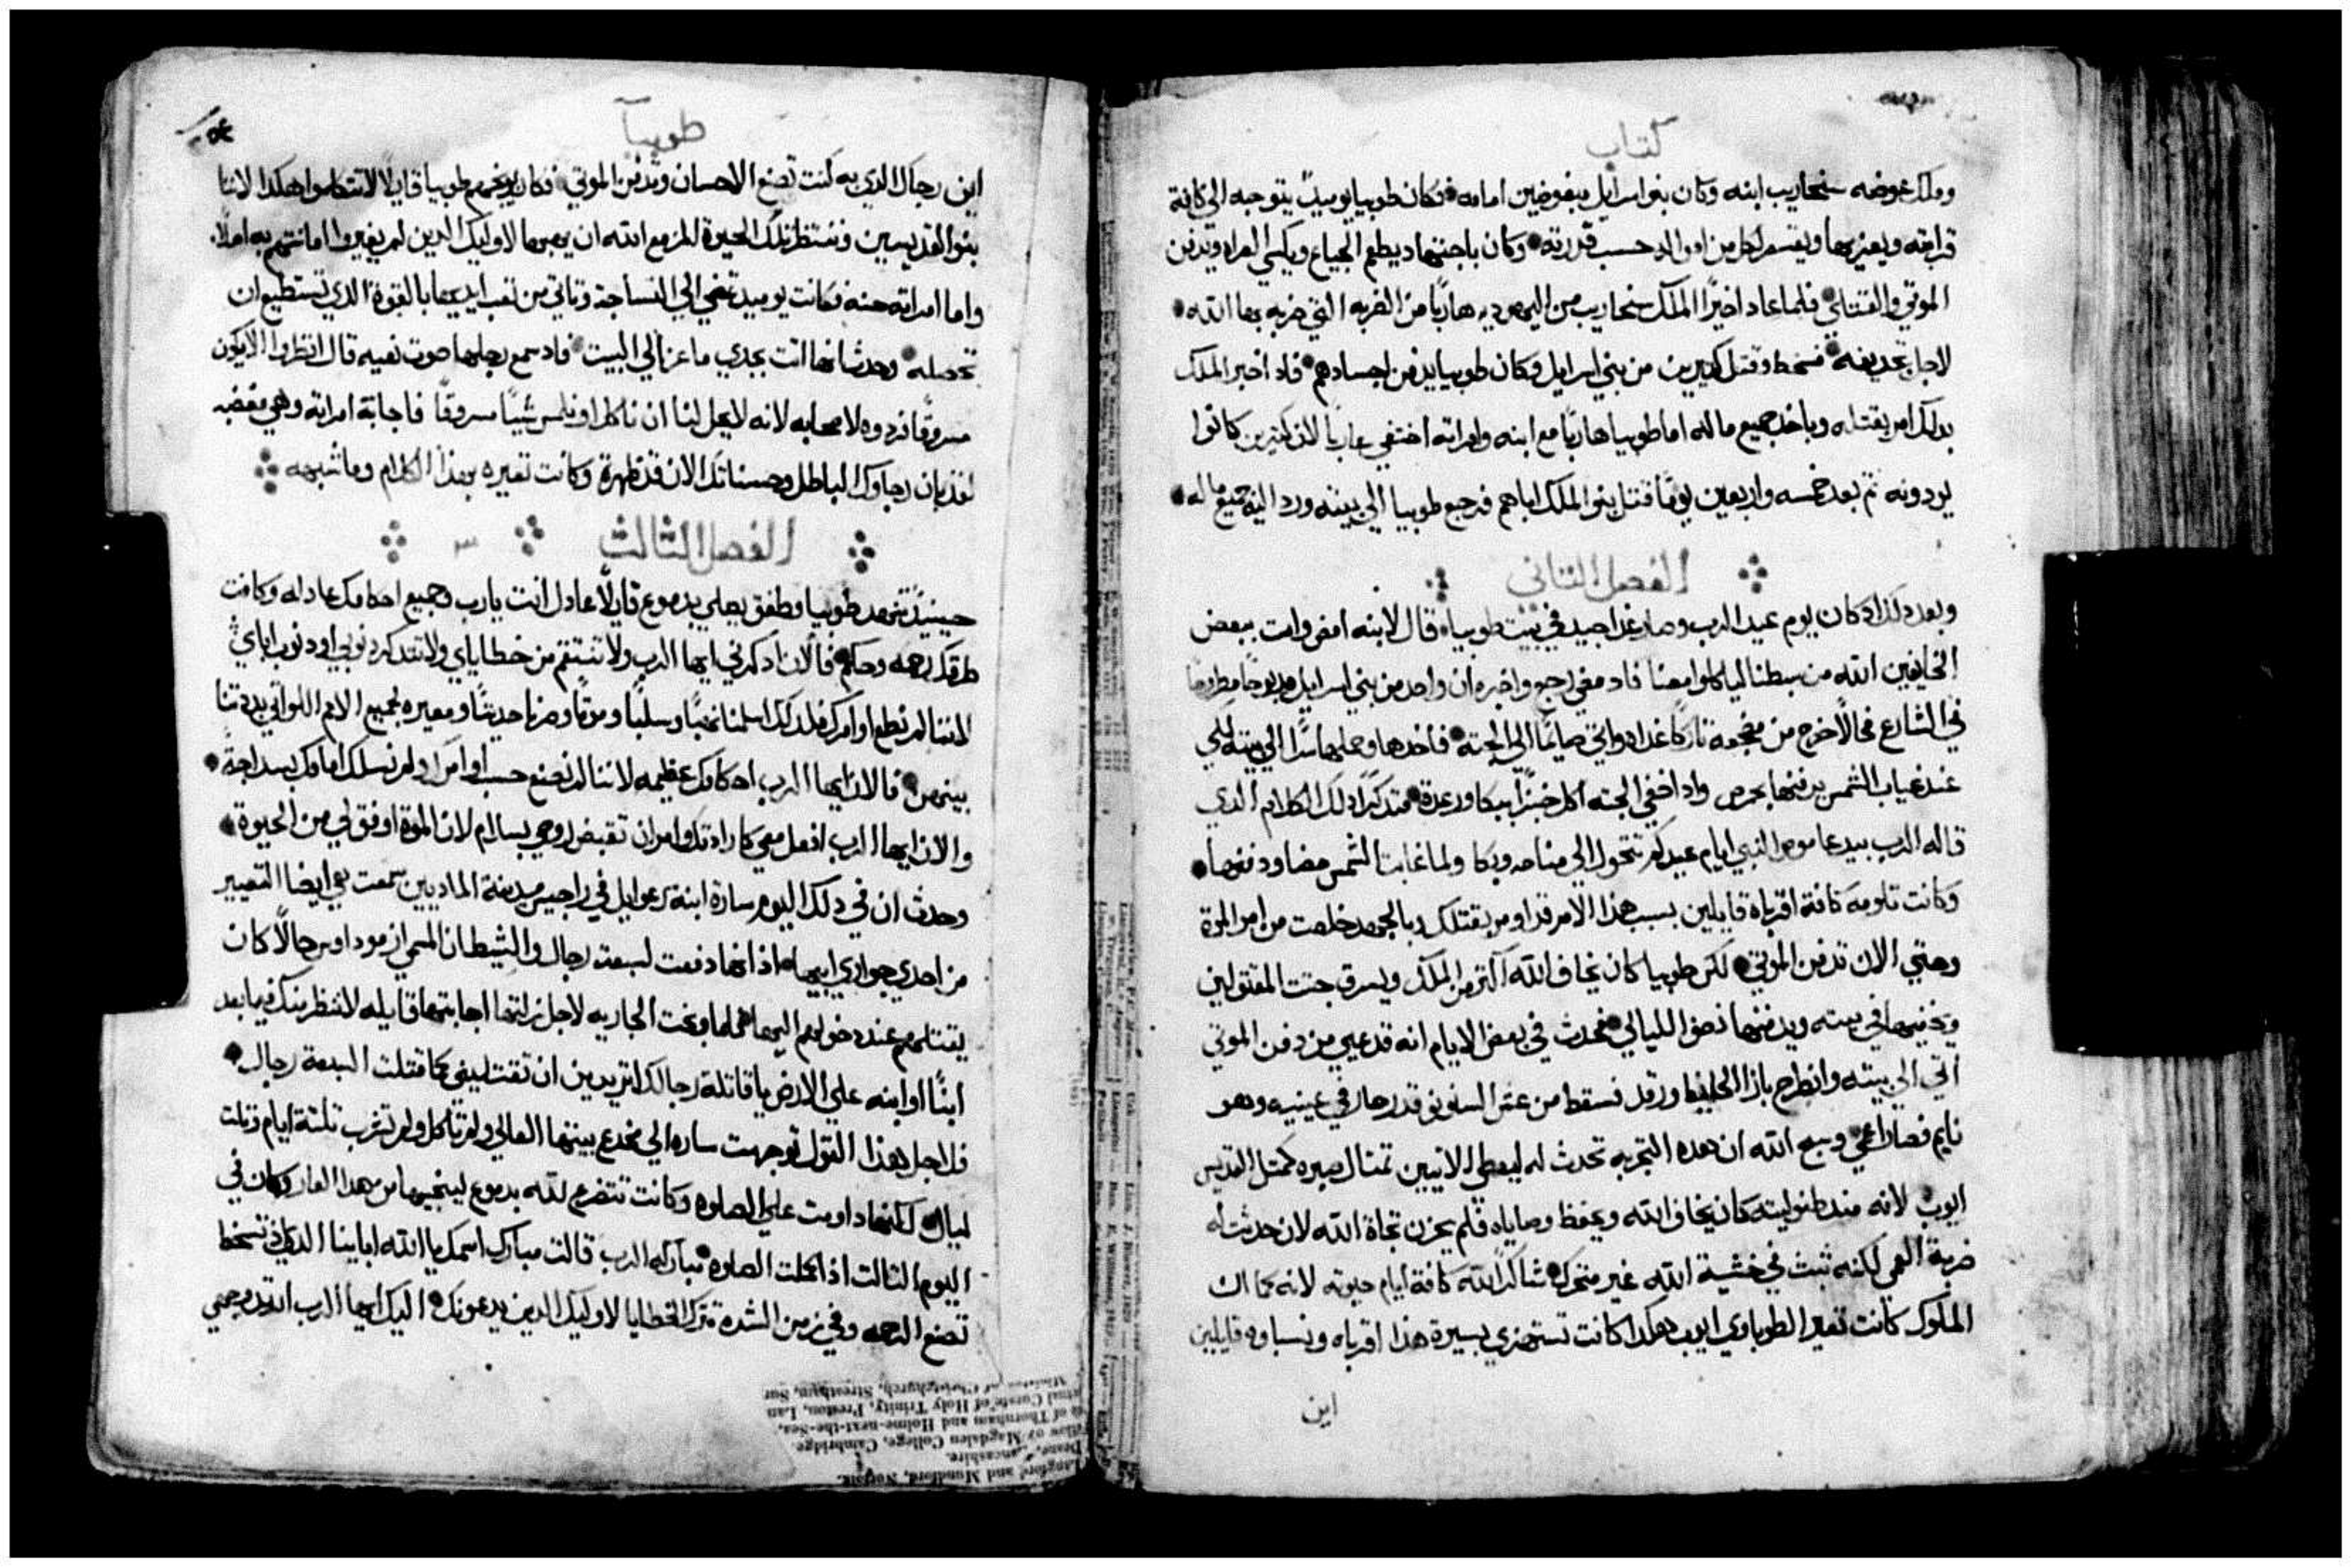 كتاب
وملك عوضه سنحاريب ابنه وكان بنو اسرايل مبغوضين امامه فكان طوبيا يوميدٍ يتوجه الي كافة
قرابته ويعزيها ويقسم لكل من امواله حسب قدرته وكان باجتهاد يطعم الجياع ويكسي العراه ويدفن
الموتي والقتلي فلما عاد اخيرًا الملك سنحاريب من اليهوديه هاربًا من الضربه التي ضربه بها الله
لاجل تجديفه فسخط وقتل كثيرين من بني اسرايل وكان طوبيا يدفن اجسادهم فاد اخبر الملك
بدلك امر بقتله وباخد جميع ماله اما طوبيا هاربًا مع ابنه وامراته اختفي عاريًا لان كثيرين كانوا
يودونه ثم بعد خمسه واربعين يومًا قتل بنو الملك اباهم فرجع طوبيا الي بيته ورد اليه جميع ماله
الفصل التاني
وبعد دلك اد كان يوم عيد الرب وصار غدا جيد في بيت طوبيا قال لابنه امض وات ببعض
الخايفين الله من سبطنا لياكلوا معنا فاد مضي رجع واخبره ان واحد من بني اسرايل مدبوحًا مطروحًا
في الشارع فحالًا خرج من مضجعه تاركًا غداه واتي صايمًا الي الجته فاخدها وحملها سرًا الي بيته لكي
عند غياب الشمس يدفنها بحرص واد اخفي الجته اكل خبزًا ببكا ورعدة متدكرًا دلك الكلام الدي
قاله الرب بيد عاموص النبي ايام عيدكم تتحول الي مناحه وبكا ولما غابت الشمس مضا ودفنها
وكانت تلومه كافة اقرباه قايلين بسبب هذا الامر قد اومر بقتلك وبالجهد خلصت من امر الموة
وحتي الان تدفن الموتي لكن طوبيا كان يخاف الله اكتر من الملك ويسرق جتت المقتولين
ويخفيها في بيته ويدفنها نصف الليالي فحدث في بعض الايام انه قد عيي من دفن الموتي
اتي الي بيته وانطرح بازا الحايط ورقد فسقط من عش السنونو قدر حار في عينيه وهو
نايم فصار اعمي وسمح الله ان هده التجربه تحدث له ليعطي للاتيين تمتال صبره كمتل القديس
ايوب لانه مند طفوليته كان يخاف الله ويحفظ وصاياه فلم يحزن تجاة الله لان حدثت له
ضربة العمي لكنه ثبت في خشية الله غير متحرك شاكرًا لله كافة ايام حيوته لانه كما ان
الملوك كانت تعير الطوباوي ايوب هكدا كانت تستهزي بسيرة هذا اقرباه ونسباوه قايلين
اين
طوبيا
اين رجاك الدي به كنت تصنع الاحسان وتدفن الموتي فكان يوبخهم طوبيا قايلًا لا تتكلموا هكدا لاننا
بنو القديسين وننتظر تلك الحيوة المزمع الله ان يهبها لاوليك الدين لم يغيروا امانتهم به اصلًا
واما امراته حنه فكانت يوميد تمضي الي النساجة وتاتي من تعب ايديها بالقوة الدي تستطيع ان
تحصله وحدث انها اتت بجدي ماعز الي البيت فاد سمع رجلها صوت نغيه قال انظروا الا يكون
مسروقًا فردوه لاصحابه لانه لا يحل لنا ان ناكل او نلمس شيئًا مسروقًا فاجابة امراته وهي مغضبه
نعم بان رجاوك الباطل وحسناتك الان قد ظهرة وكانت تعيره بهذا الكلام وما شبهه
الفصل الثالث ٣
حينيدٍ تنهد طوبيا وطفق يصلي بدموع قايلًا عادل انت يارب وجميع احكامك عادله وكافت
طرقك رحمه وحكم فالان ادكرني ايها الرب ولا تنتقم من خطاياي ولا تتدكر دنوبي او دنوب اباي
لاننا لم نطع اوامرك فلدلك اسلمنا نهبًا وسلبًا وموتًا وصرنا حديثًا ومعيره لجميع الامم اللواتي بددتنا
بينهن فالان ايها الرب احكامك عظيمه لاننا لم نصنع حسب اوامرك ولم نسلك امامك بسداجة
والان ايها الرب افعل معي كارادتك وامر ان تقبض روحي بسلام لان الموة اوفق لي من الحيوة
وحدث ان في دلك اليوم سارة ابنة رعوايل في راجيس مدينة الماديين سمعت هي ايضا التعيير
من احدي جواري ابيها اذ انها دفعت لسبعت رجال والشيطان المسمي ازموداوس حالًا كان
يقتلهم عند دخولهم اليها فلما وبخت الجاريه لاجل زلتها اجابتها قايله لا ننظر منك فيما بعد
ابنًا او ابنه علي الارض يا قاتلة رجالك اتريدين ان تقتليني كما قتلت السبعة رجال
فلاجل هذا القول توجهت ساره الي مخدع بيتها العالي ولم تاكل ولم تشرب تلتة ايام وتلت
ليال لكنها داومت علي الصلوه وكانت تتضرع لله بدموع لينجيها من هدا العار وكان في
اليوم التالت اذ اكملت الصلوه مباركه الرب قالت مبارك اسمك يا الله اباينا الدي اذ تسخط
تصنع الرحمه وفي زمن الشدة تترك الخطايا لاوليك الدين يدعونك اليك ايها الرب ارد وجهي